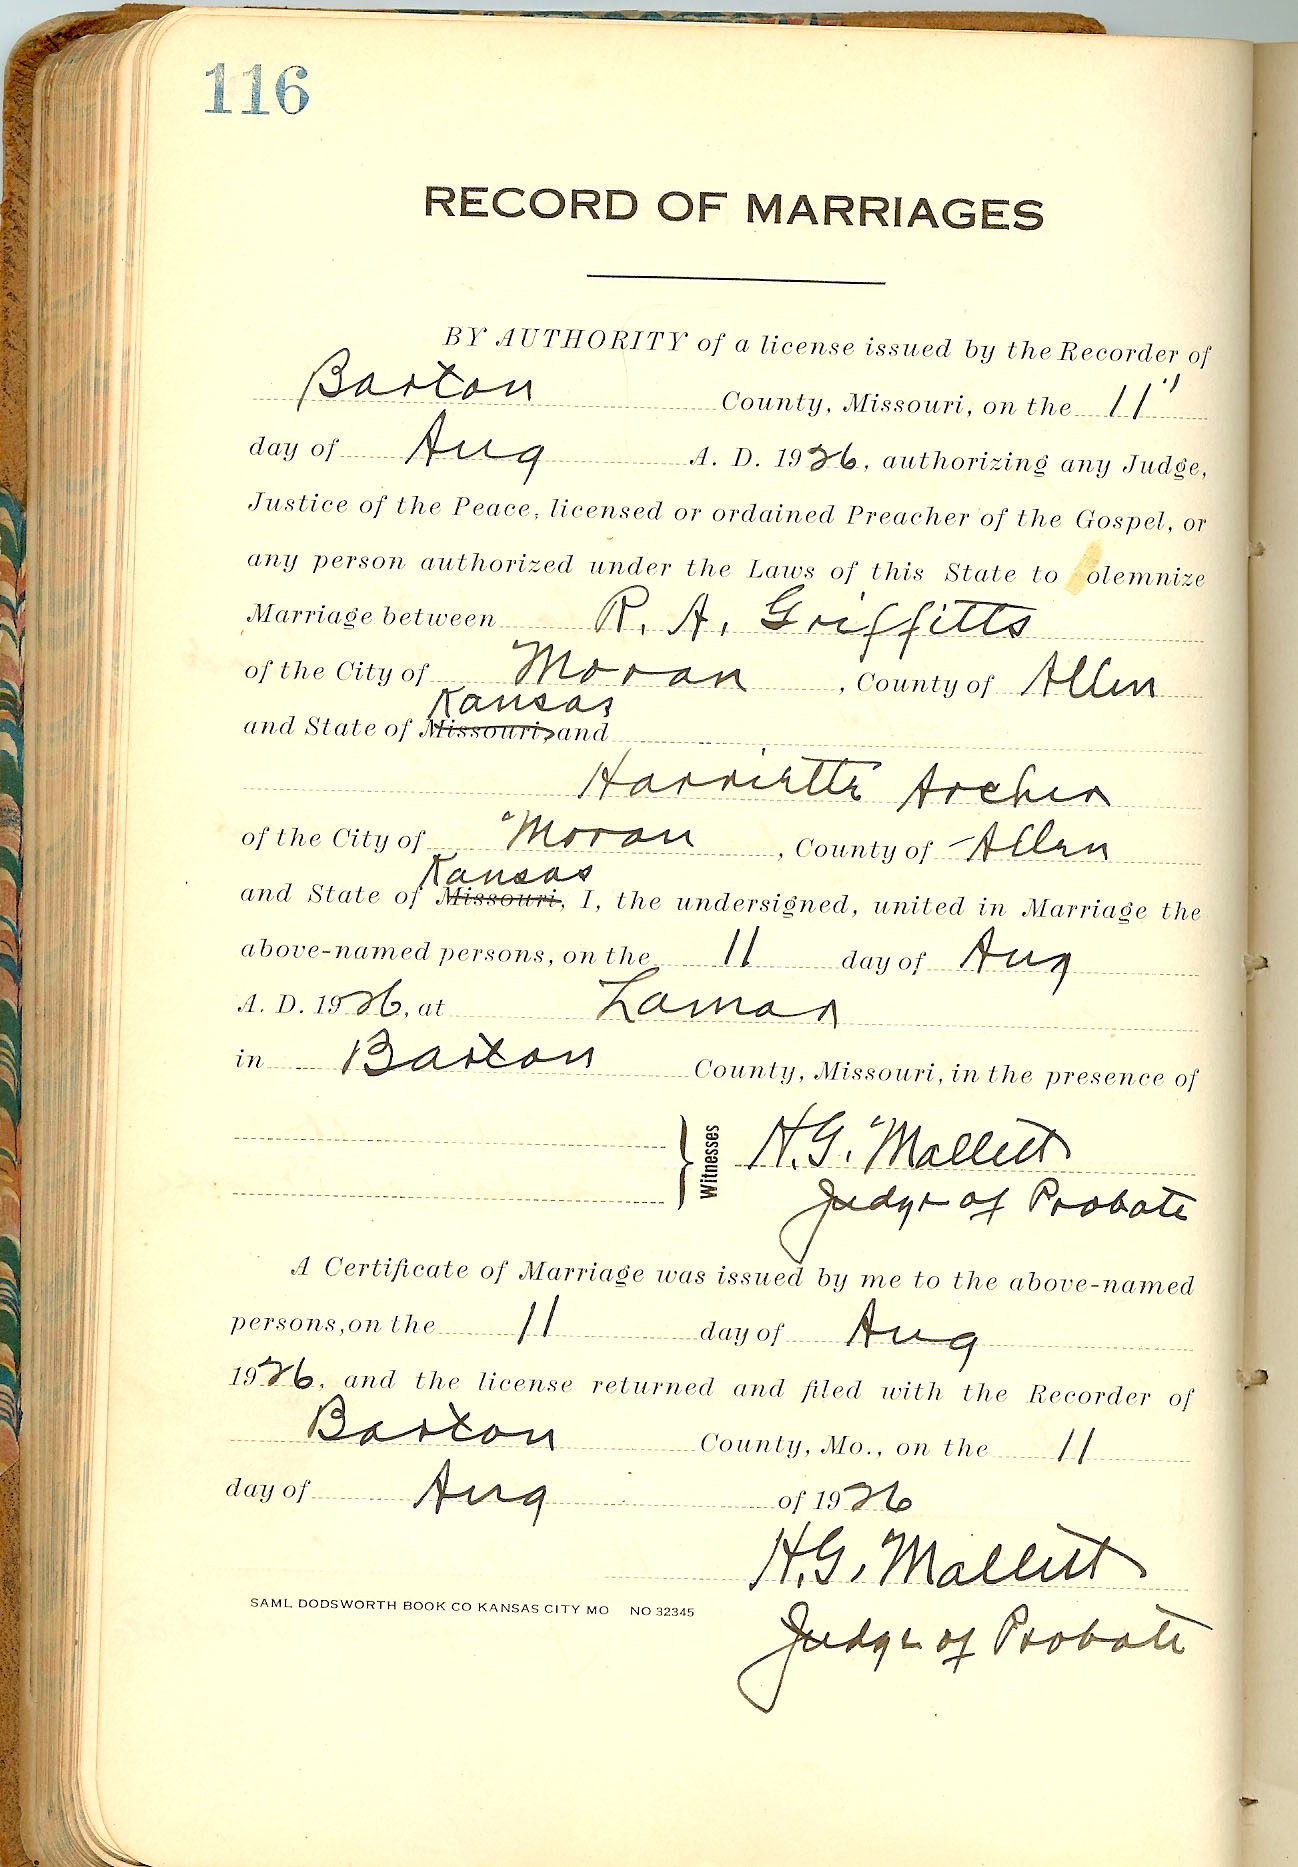 116
RECORD OF MARRIAGES
BY AUTHORITY of a license issued by the Recorder of
Barton County, Missouri, on the 11"
day of Aug A. D. 1926, authorizing any Judge,
Justice of the Peace, licensed or ordained Preacher of the Gospel, or
any person authorized under the Laws of this State to olemnize
Marriage between R. A. Griffitts
of the City of Moran, County of Allen
Kansas
and State of Missouri, and
Harriette Archer
of the City of Moran, County of Allen
Kansas
and State of Missouri, I, the undersigned, united in Marriage the
above-named persons, on the 11 day of Aug
A. D. 1926, at Lamar
in Barton County, Missouri, in the presence of
Witnesses
H. G. Mallett
Judge of Probate
A Certificate of Marriage was issued by me to the above-named
persons, on the 11 day of Aug
1926, and the license returned and filed with the Recorder of
Barton County, Mo., on the 11
day of Aug of 1926
H. G. Mallett
SAML DODSWORTH BOOK CO KANSAS CITY MO NO 32345
Judge of Probate